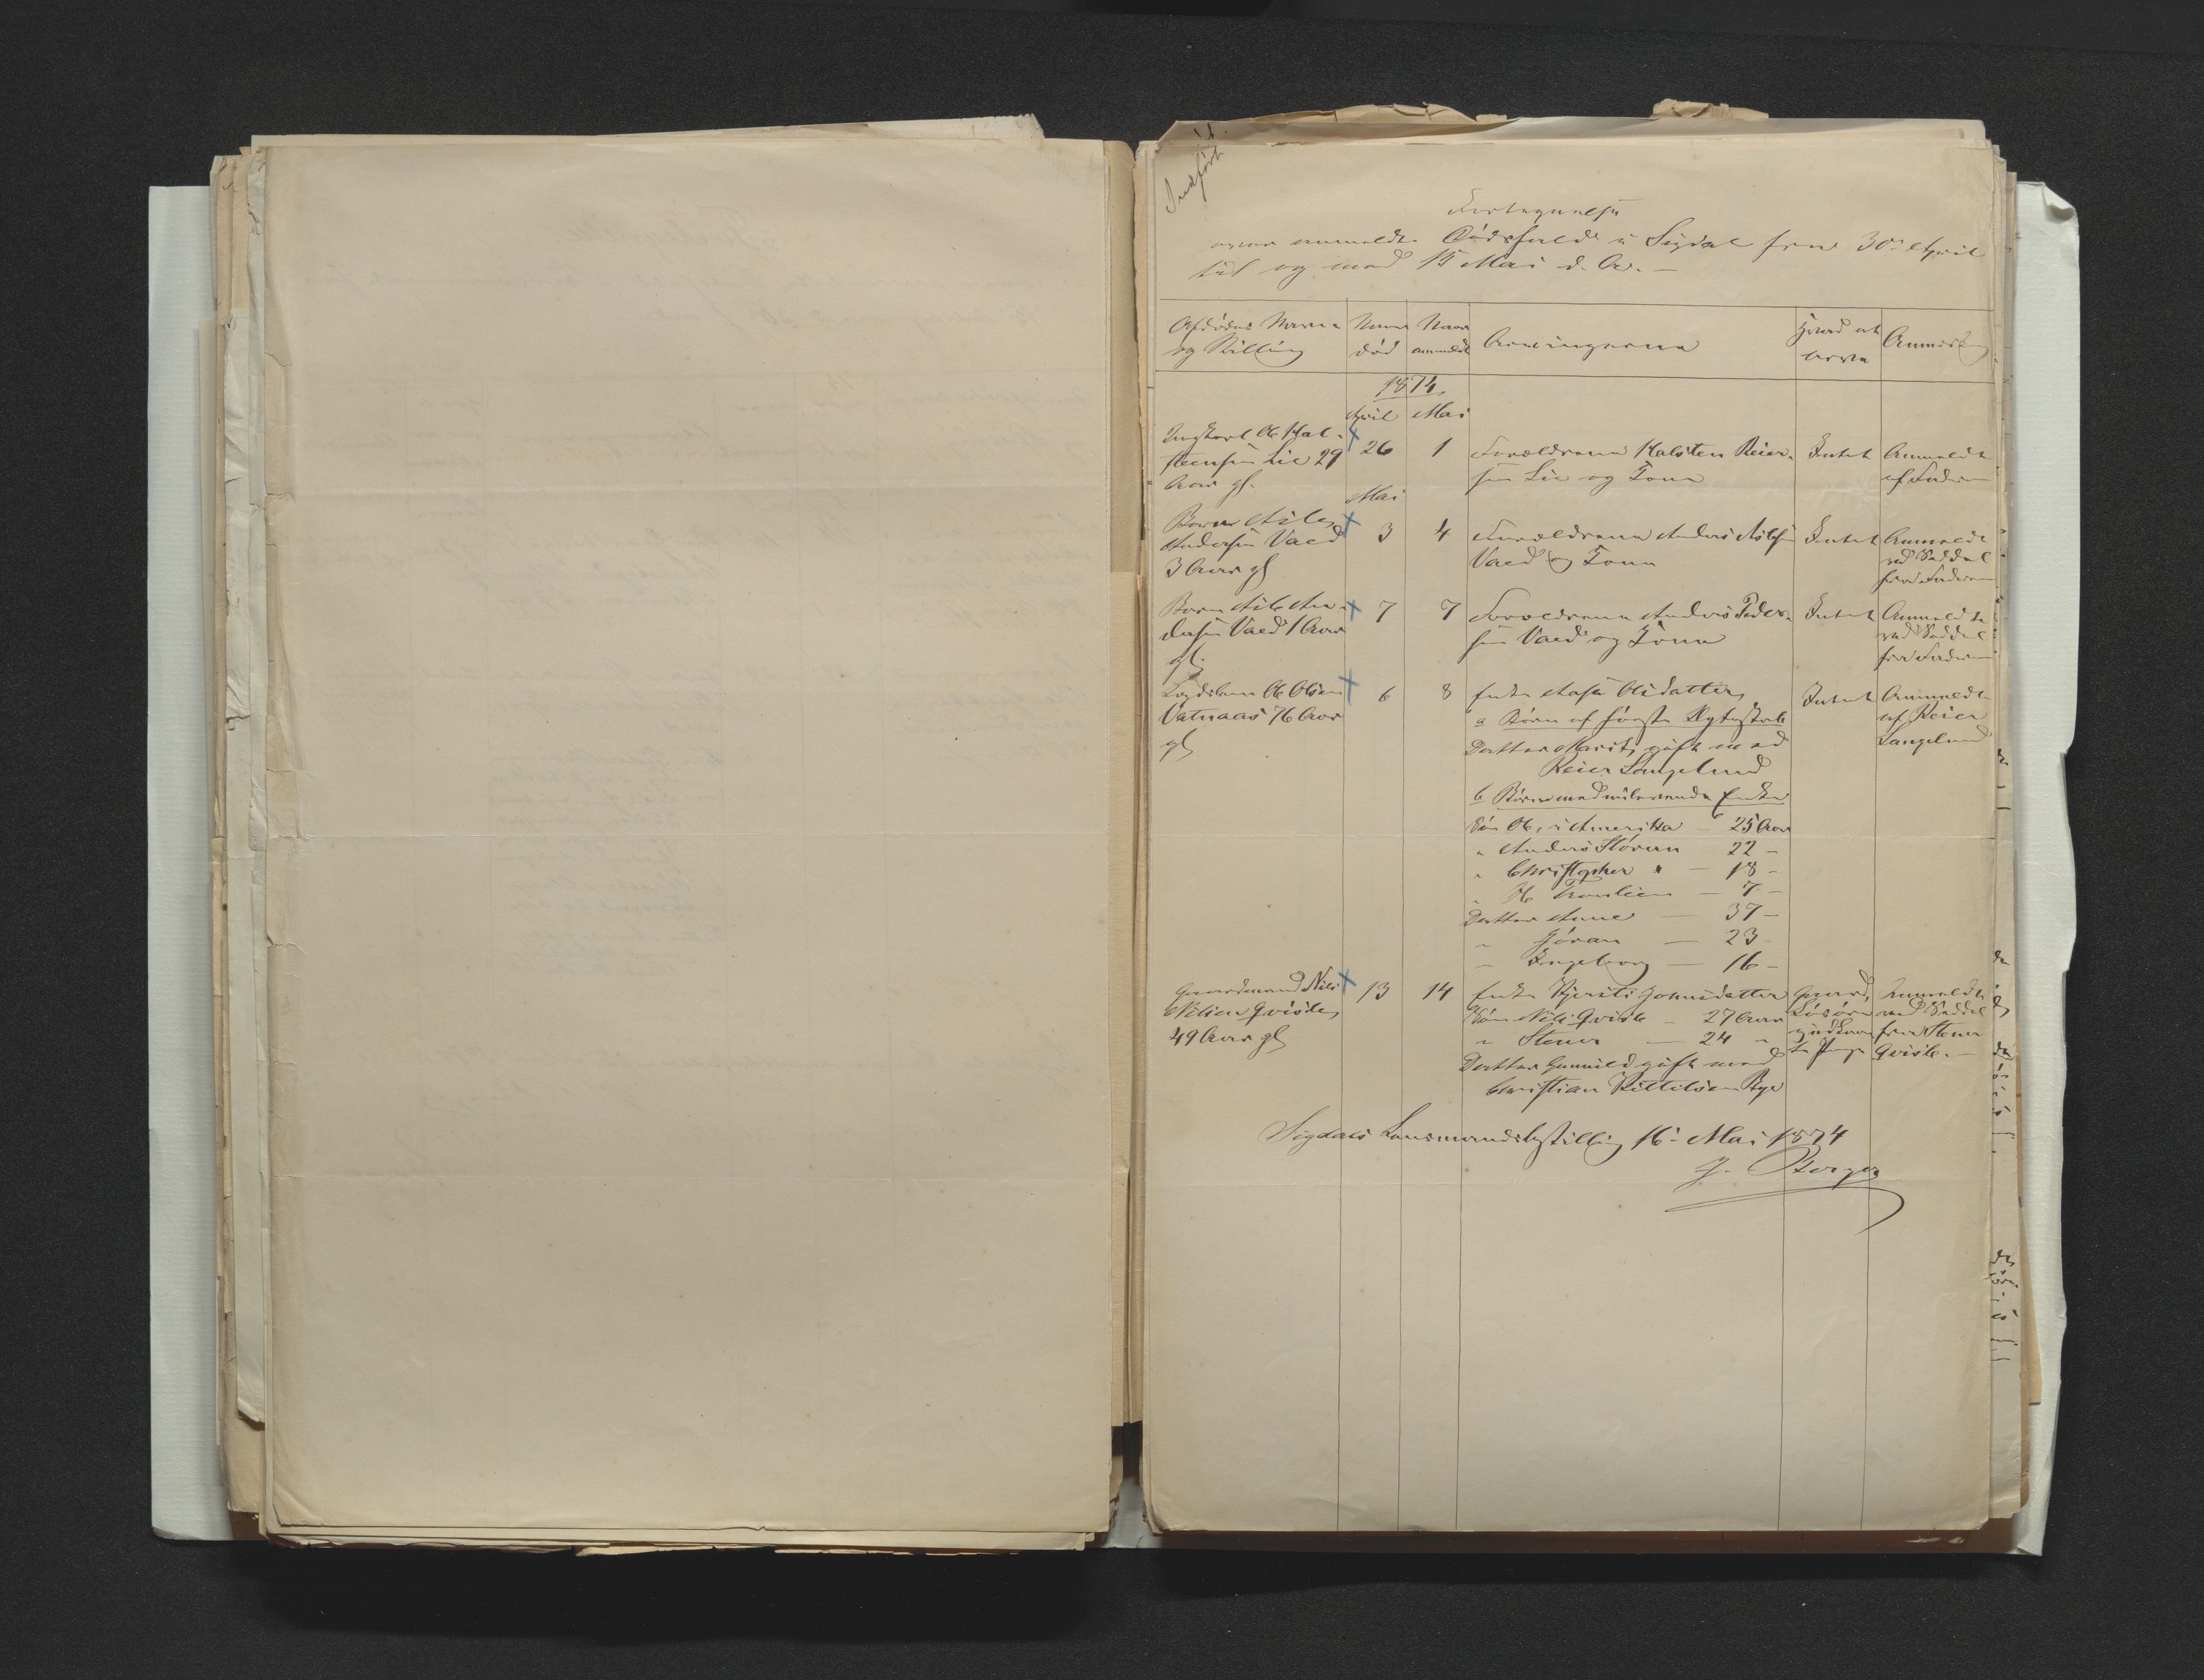 Indført
Fortegnelse
over anmeldte Dødsfald i Sigdal fra 30te April
til og med 15 Mai d. A. —
Afdødes Navn
og Stilling
Naar
død
Naar
anmeldt
Arvingerne
Hvad at
arve
Anmærkn
1874
April Mai
Ungkarl Ole Hal-
steensen Lie 29
Aar gl.
26
1
Forældrene Halsten Reier-
sen Lie og Kone
Intet
Anmeldt
af Faderen
Mai
Barn Asle
Andersen Vaed
3 Aar gl
3
4
Forældrene Anders Aslesen
Vaed og Kone
Intet
Anmeldt
ved Seddel
fra Faderen
Barn Asle An-
dersen Vaed 1 Aar
gl.
7
7
Forældrene Anders Peder-
sen Vaed og Kone
Intet
Anmeldt
ved Seddel
fra Faderen
Ole Olsen
Vatnaas 76 Aar
gl
6
8
Enke Aase Olsdatter
a Børn af første Ægteskab
Datter Marit, gift med
Reier Langelund
b Børn med nulevende Enke
Søn Ole, i Amerika — 25 Aar
" Anders Støveren 22 –
" Christopher " — 18 –
" Ole — 7 –
Datter Anne — 37 –
" Jøran — 23 –
" Ingeborg — 16 –
Intet
Anmeldt
af Reier
Langelund
Gaardmand Nils
Nilsen Qvisle
49 Aar gl
13
14
Enke Kjersti Johnsdatter
Søn Nils Qvisle — 27 Aar
" Stener — 24 "
Datter Gunnild gift med
Christian Kittelsen Bye
Gaard,
Løsøre
Anmeldt
ved Seddel
fra Stener
Qvisle. —
Sigdals Lensmandsbestilling 16de Mai 1874
J. Borger